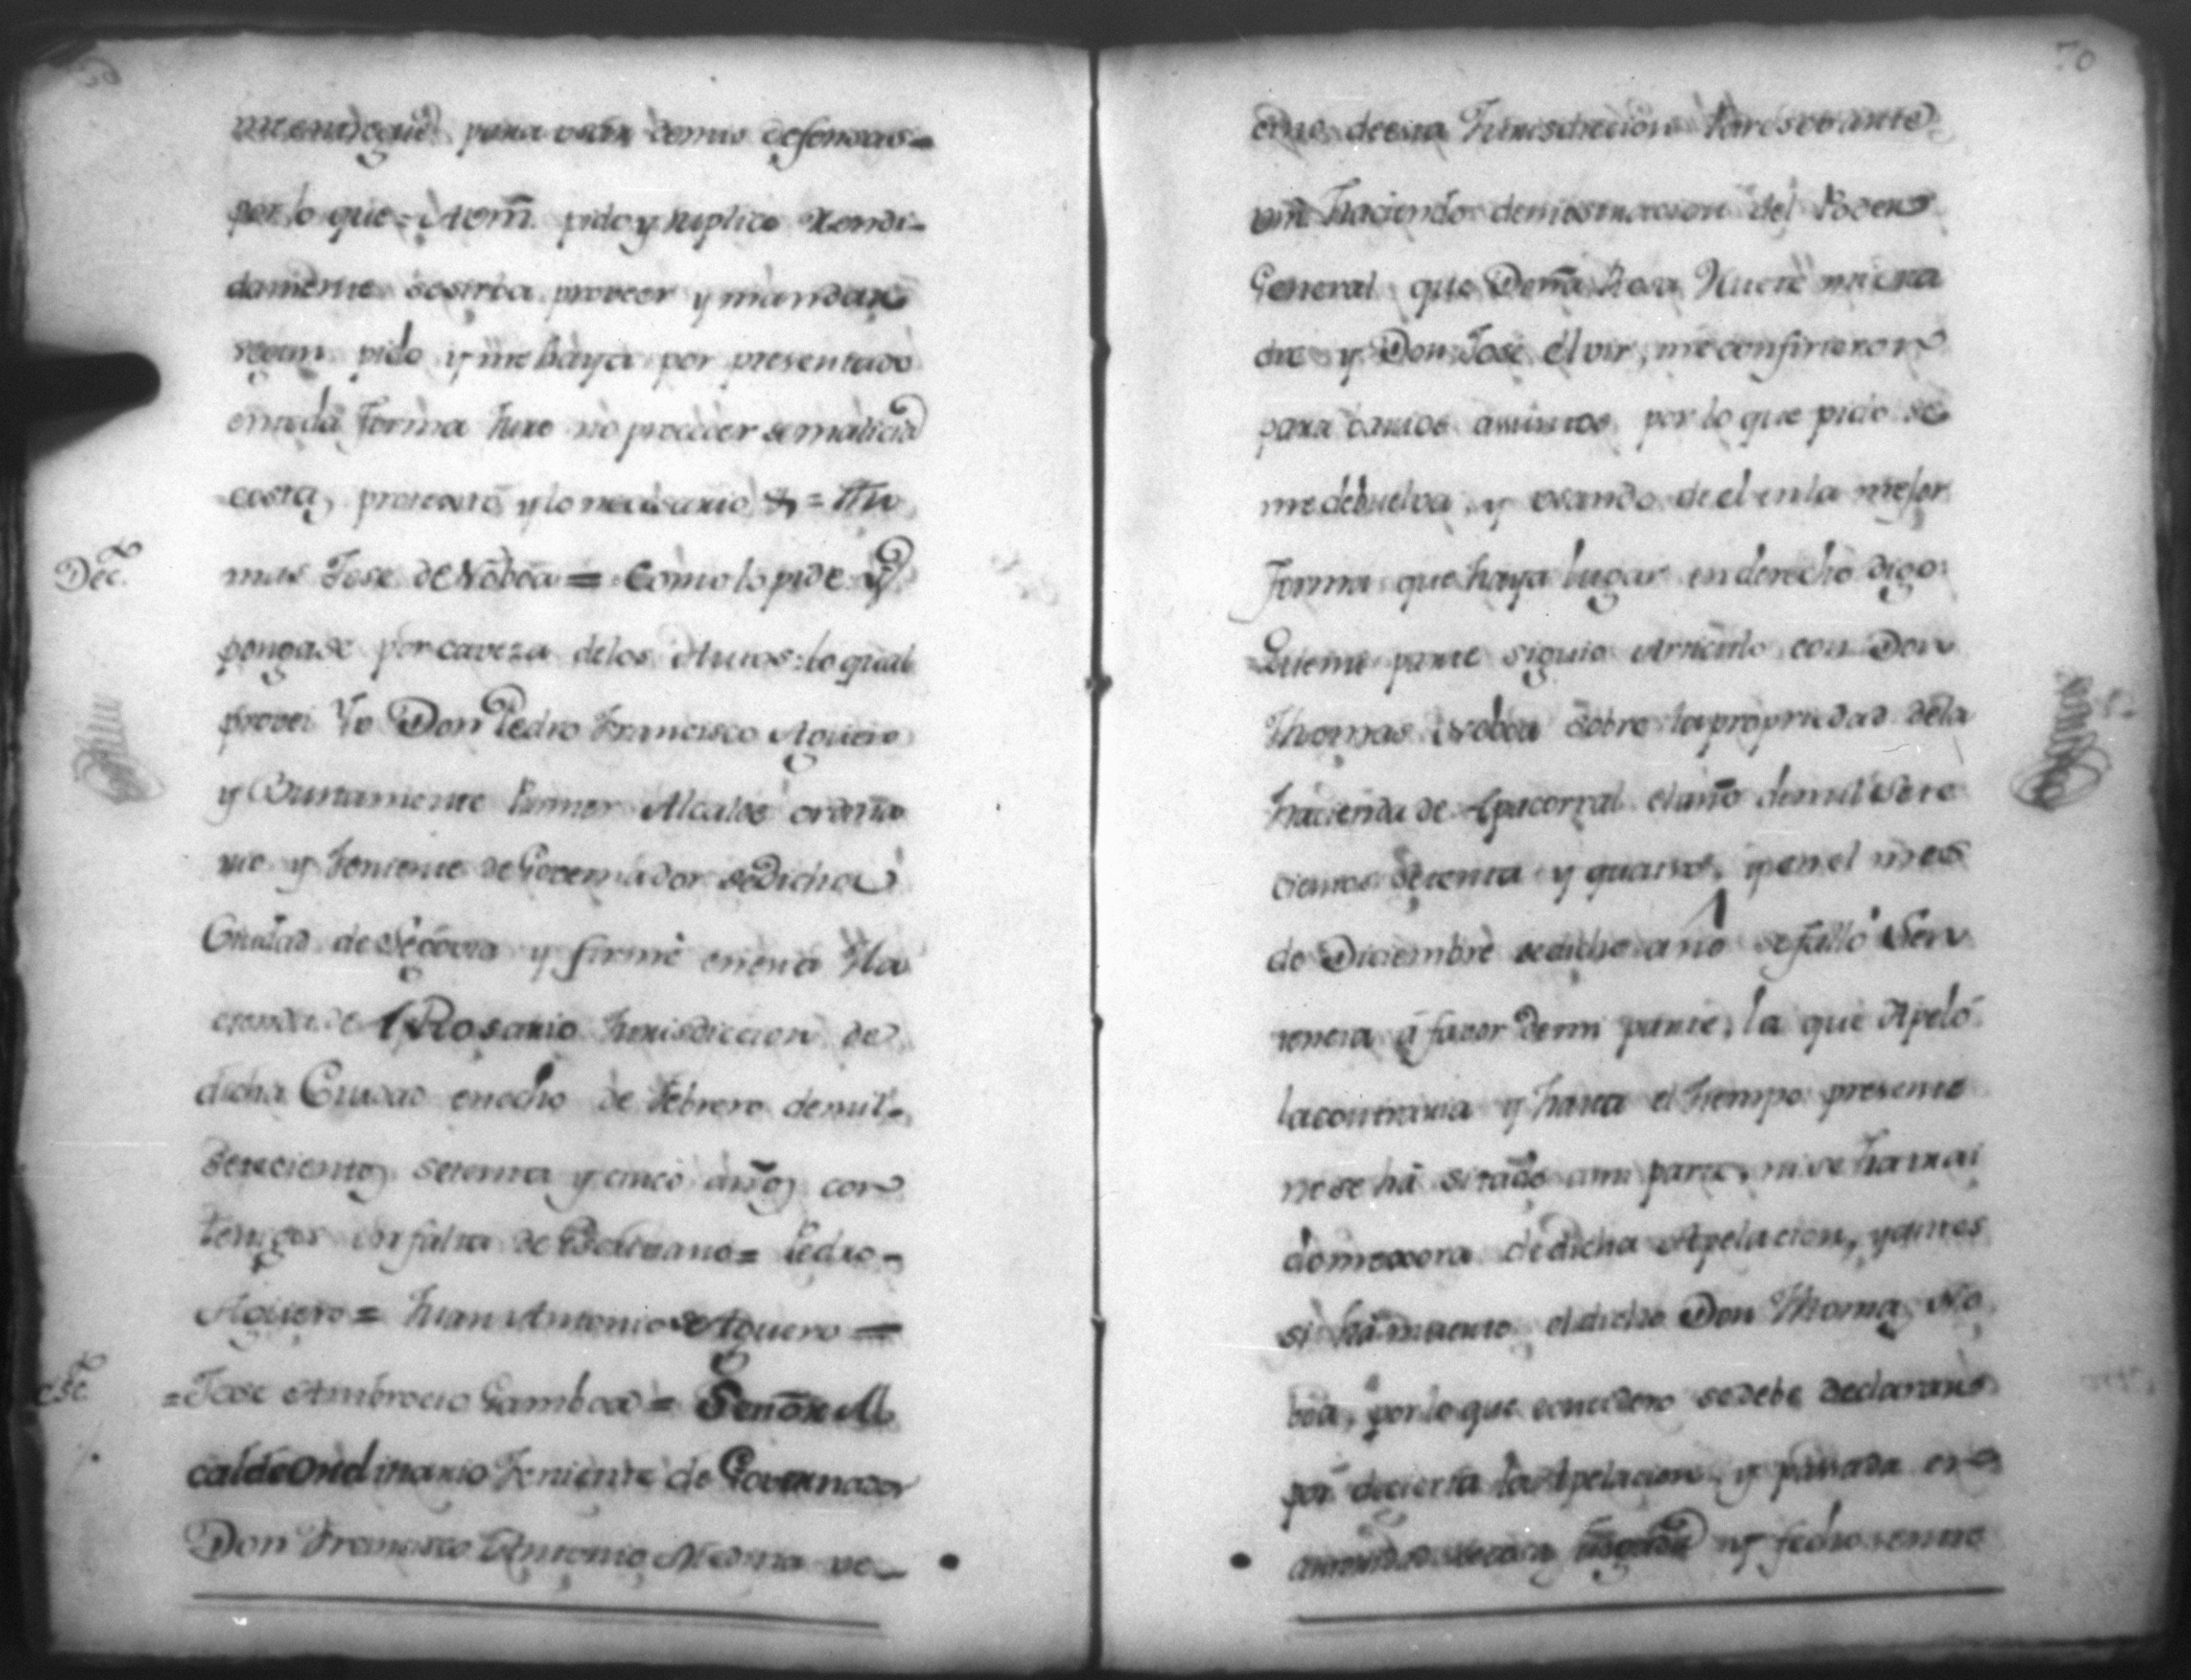 me entregue para usar de mis defensas =
por lo que = A Vm̃ pido y suplico Rendi-
damente se sirva proveer y mandar
segun pido y me haya por presentado
en toda forma Juro no proceder de malicia
costas, protexto y lo necesario &. = Tho
Dec.to
mas Jose de Noboa = Como lo pide y
pongase por caveza de los Autos: lo qual
provei Yo Don Pedro Francisco Aguero
y Bustamente Primer Alcalde ordina
rio y Teniente de Governador de dicha
Ciudad de Segovia y firmé en esta Ha
cienda de el Rosario Jurisdiccion de
dicha Ciudad en ocho de Febrero de mil
setecientos setenta y cinco años con
testigos en falta de Escrivano = Pedro
Aguero = Juan Antonio de Aguero =
Esc.to
= Jose Ambrocio Gamboa = Señor Al
calde Ordinario Teniente de Governador
Don Francisco Antonio Medina ve-
70
cino de esta Jurisdiccion Paresco ante
Vm̃ haciendo demostracion del Poder
General que Doña Rosa
y Don Jose Elvir, me confirieron
para barios asuntos por lo que pido se
me debuelva, y usando de el en la mejor
forma que haya lugar en derecho digo:
Que mi parte siguio Articulo con Don
Thomas Noboa sobre la propriedad de la
hacienda de Apacorral el año de mil sete
cientos setenta y quatro, y en el mes
de Diciembre de dicho año se falló Sen
tencia á favor de mi parte, la que Apeló
la contraria y hasta el tiempo presente
no se há sitado a mi parte, ni se ha
do mexora de dicha Apelacion, y antes
si há muerto el dicho Don Thomas No
boa, por lo que se debe declarar
por decierta la Apelacion, y pasada en
autoridad de cosa jusgada y fecho